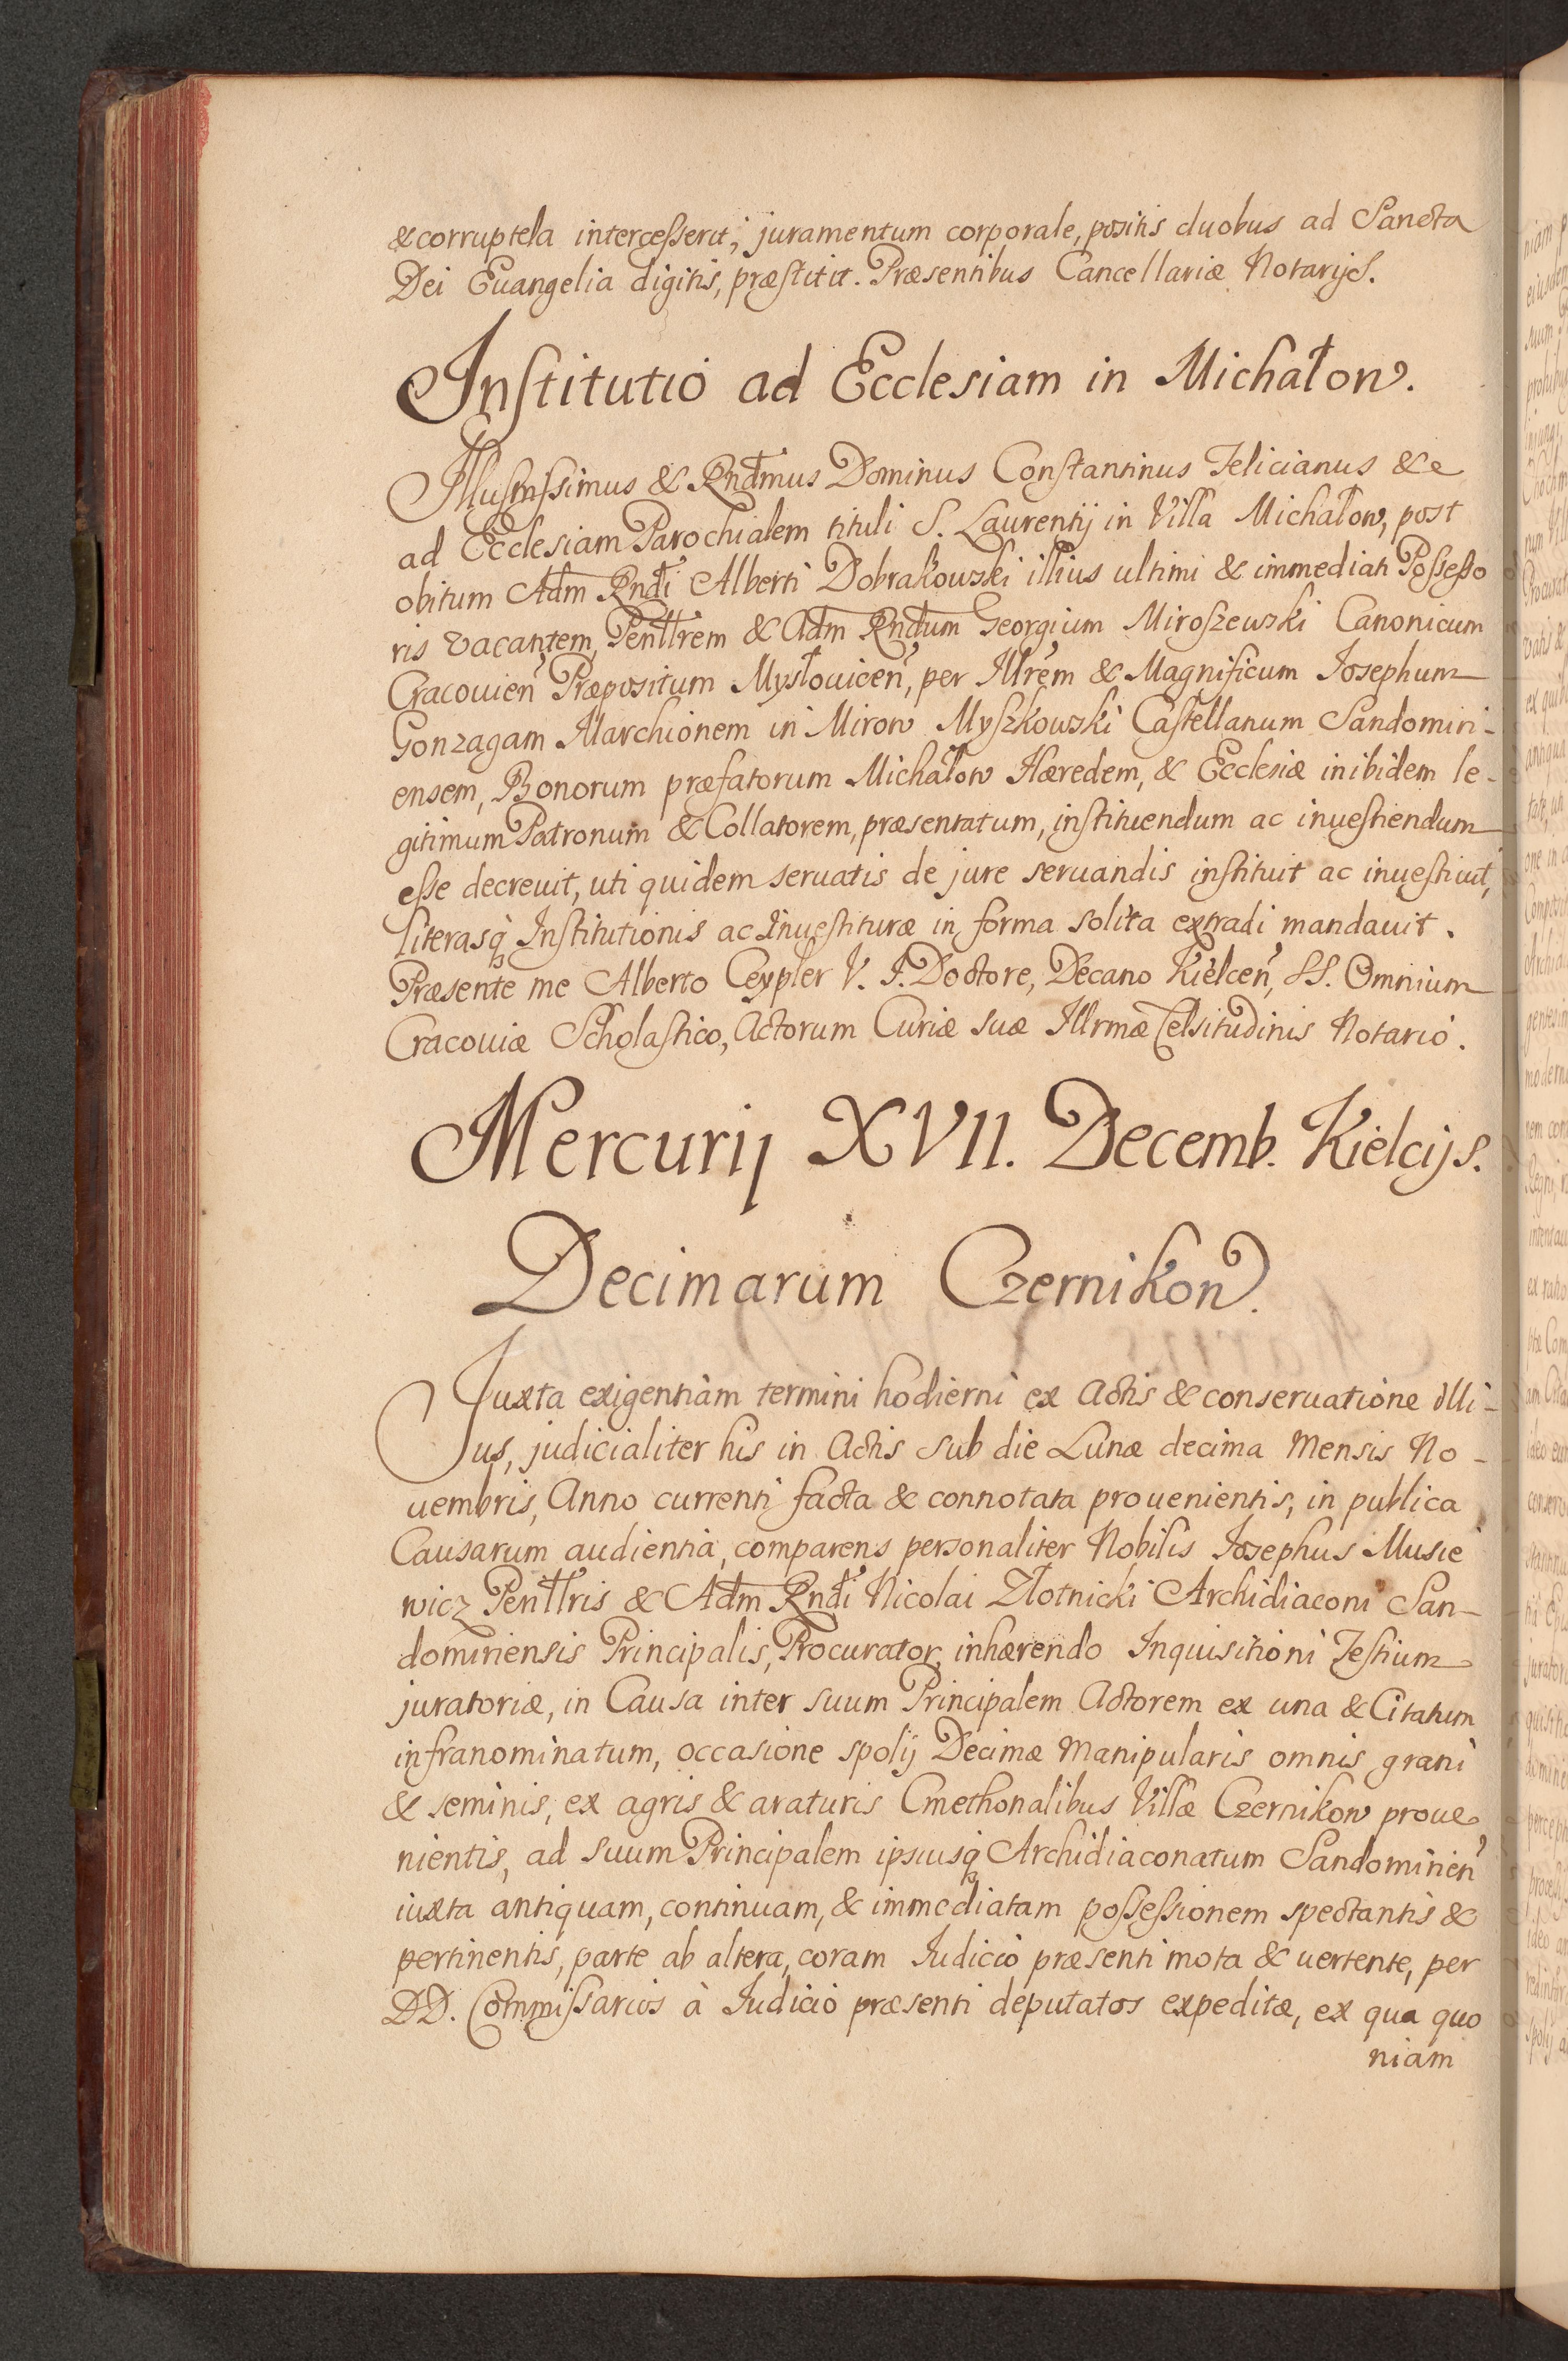 & corruptela intercesserit, juramentum corporale, positis duobus ad Sancta
Dei Euangelia digitis, præstitit. Præsentibus Cancellariæ Notarijs.
Institutio ad Ecclesiam in Michałow.
Illustrissimus & Rndmus Dominus Constantinus Felicianus &c
ad Ecclesiam Parochialem tituli S. Laurentij in Villa Michałow, post
obitum Adm Rndi Alberti Dobrakowski illius ultimi & immediati Possesso
ris vacantem, Penllrem & Adm Rndum Georgium Miroszewski Canonicum
Cracouien Præpositum Mysłouicen, per Illrem & Magnificum Josephum
Gonzagam Marchionem in Mirow Myszkowski Castellanum Sandomiri-
ensem, Bonorum præfatorum Michałow Hæredem, & Ecclesiæ inibidem le-
gitimum Patronum & Collatorem, præsentatum, instituendum ac inuestiendum
esse decreuit, uti quidem seruatis de jure seruandis instituit ac inuestiuit,
literasq Institutionis ac Inuestituræ in forma solita extradi mandauit.
Præsente me Alberto Ceypler V. J. Doctore, Decano Kielcen, SS. Omnium
Cracouiæ Scholastico, Actorum Curiæ suæ Illrmæ Celsitudinis Notario.
Mercurij XVII. Decemb. Kielcijs.
Decimarum Czernikow.
Juxta exigentiam termini hodierni ex Actis & conseruatione illi-
us, judicialiter his in Actis sub die Lunæ decima Mensis No-
uembris, Anno currenti facta & connotata prouenientis, in publica
Causarum audientia, comparens personaliter Nobilis Josephus Musie
wicz Penllris & Adm Rndi Nicolai Złotnicki Archidiaconi San-
domiriensis Principalis, Procurator, inhærendo Inquisitioni Testium
juratoriæ, in Causa inter suum Principalem Actorem ex una & Citatum
infranominatum, occasione spolij Decimæ Manipularis omnis grani
& seminis, ex agris & araturis Cmethonalibus Villæ Czernikow proue
nientis, ad suum Principalem ipsiusq Archidiaconatum Sandomirien
iuxta antiquam, continuam, & immediatam possessionem spectantis &
pertinentis, parte ab altera, coram Iudicio præsenti mota & uertente, per
DD. Commissarios à Iudicio præsenti deputatos expeditæ, ex qua quo
niam